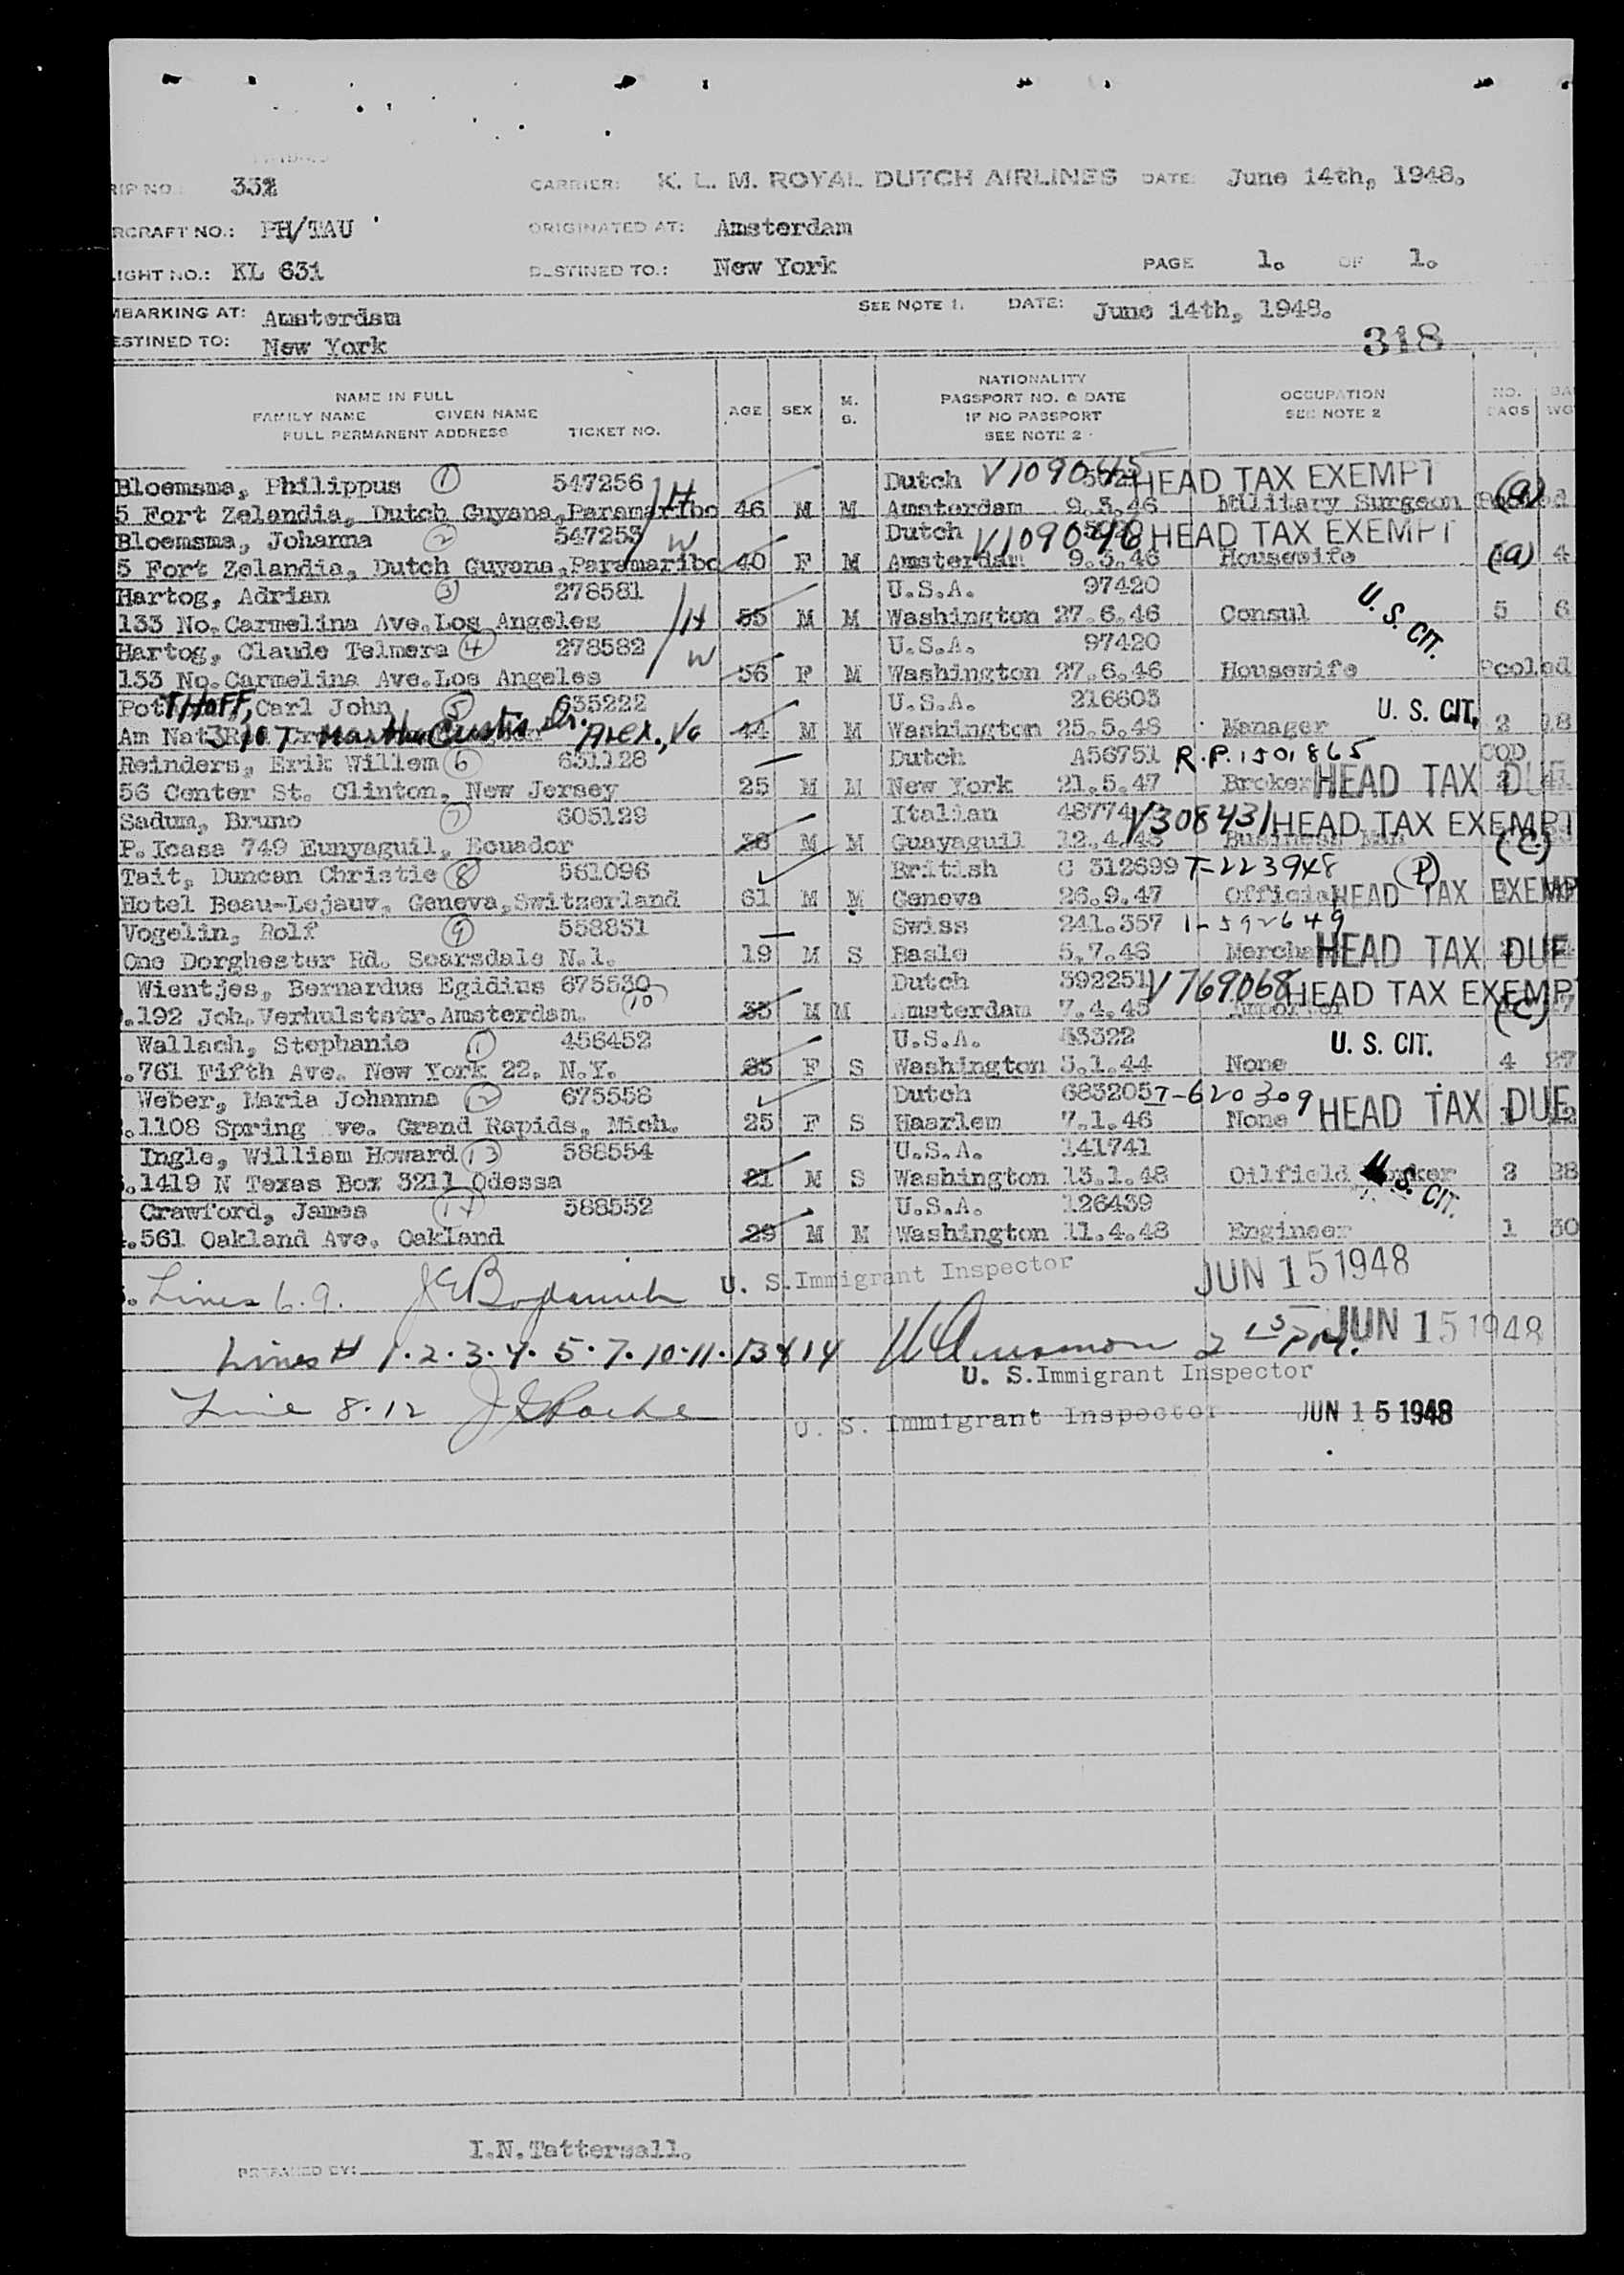 RIP NO. 332 CARRIER: K. L. M. ROYAL DUTCH AIRLINES DATE: June 14th, 1948.
RCRAFT NO.: PH/TAU ORIGINATED AT: Amsterdam
IGHT NO.: KL 631 DESTINED TO.: New York PAGE 1. OF 1.
MBARKING AT: Amsterdam SEE NOTE 1. DATE: June 14th, 1948.
ESTINED TO: New York 318
NAME IN FULL
FAMILY NAME GIVEN NAME
FULL PERMANENT ADDRESS TICKET NO. AGE SEX M. S. NATIONALITY PASSPORT NO. & DATE IF NO PASSPORT SEE NOTE 2 OCCUPATION SEE NOTE 2 NO. BAGS
Bloemsma, Philippus 1 547256 H Dutch HEAD TAX EXEMPT
5 Fort Zelandia, Dutch Guyana, Paramaribo 46 M M Amsterdam 9.3.46 Military Surgeon (a)
Bloemsma, Johanna 2 547253 W Dutch V1090448 HEAD TAX EXEMPT
5 Fort Zelandia, Dutch Guyana, Paramaribo 40 F M Amsterdam 9.3.46 Housewife (a) 4
Hartog, Adrian 3 278581 U.S.A. 97420
133 No. Carmelina Ave. Los Angeles H 55 M M Washington 27.6.46 Consul U. S. CIT. 5 6
Hartog, Claude Telmera 4 278582 W U.S.A. 97420
133 No. Carmelina Ave. Los Angeles 56 F M Washington 27.6.46 Housewife Pooled
Pot T HOFF, Carl John 5 635222 U.S.A. 216603 U. S. CIT.
Am Nat 3107 Martha Custis Dr. Alex., Va 44 M M Washington 25.5.48 Manager 2 18
Reinders, Erik Willem 6 631128 Dutch A56751 R.P. 1501865 COD
56 Center St. Clinton, New Jersey 25 M M New York 21.5.47 Broker HEAD TAX DUE
Sadum, Bruno 7 605129 Italian 48774 V308431 HEAD TAX EXEMPT
P. Icasa 749 Eunyaguil, Ecuador 36 M M Guayaguil 12.4.48 Business Man (C)
Tait, Duncan Christie 8 561096 British C 312699 T-223948 (P)
Hotel Beau-Lejauv, Geneva, Switzerland 61 M M Geneva 26.9.47 Official HEAD TAX EXEMP
Vogelin, Rolf 9 558831 Swiss 241.357 1-592649
One Dorghester Rd. Scarsdale N.1. 19 M S Basle 5.7.46 Mercha HEAD TAX DUE
Wientjes, Bernardus Egidius 10 675530 Dutch 392251 V769068 HEAD TAX EXEMPT
.192 Joh. Verhulststr. Amsterdam. 33 M M Amsterdam 7.4.45 Importer (C) 7
Wallach, Stephanie 11 456452 U.S.A. 33322 U. S. CIT.
.761 Fifth Ave. New York 22, N.Y. 65 F S Washington 3.1.44 None 4 27
Weber, Maria Johanna 12 675558 Dutch 683205 T-620309
.1108 Spring ve. Grand Rapids, Mich. 25 F S Haarlem 7.1.46 None HEAD TAX DUE
Ingle, William Howard 13 588554 U.S.A. 141741
.1419 N Texas Box 3211 Odessa 21 M S Washington 13.1.48 Oilfield U. S. CIT. 2 28
Crawford, James 14 588552 U.S.A. 126439
.561 Oakland Ave. Oakland 29 M M Washington 11.4.48 Engineer 1 30
Lines 6.9. U. S. Immigrant Inspector JUN 15 1948
Lines # 1.2.3.4.5.7.10.11.13 & 14 JUN 15 1948
U. S. Immigrant Inspector
Line 8.12 U. S. Immigrant Inspector JUN 15 1948
PREPARED BY: I.N. Tattersall.